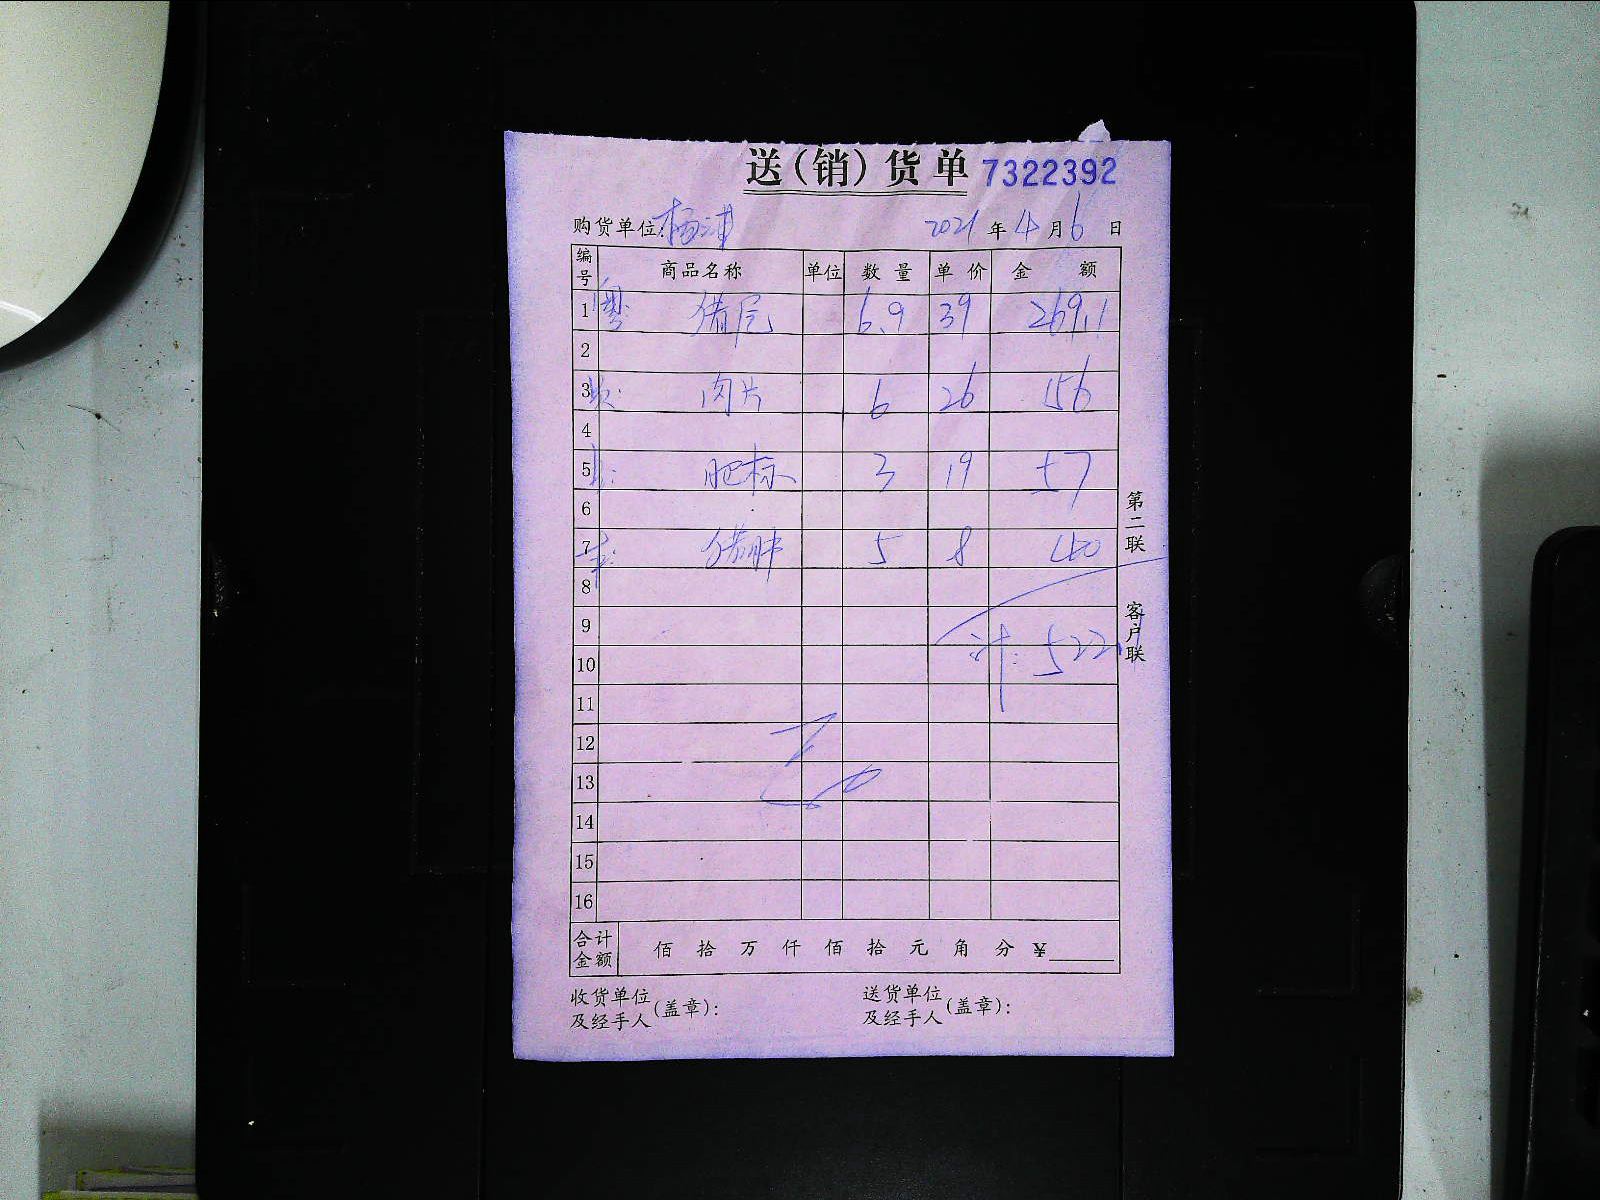 送(销)货单 7322392
购货单位:杨浦 2021 年 4 月 6 日
编号 商品名称 单位 数量 单价 金额
1 粤: 猪尾 6.9 39 269.1
2
3 肉片 6 26 156
4
5 肥标 3 19 57
6
7 猪肚 5 8 40
8
9
10 计: 522.1
11
12
13
14
15
16
合计金额 佰 拾 万 仟 佰 拾 元 角 分 ¥
收货单位及经手人(盖章): 送货单位及经手人(盖章):
第二联 客户联